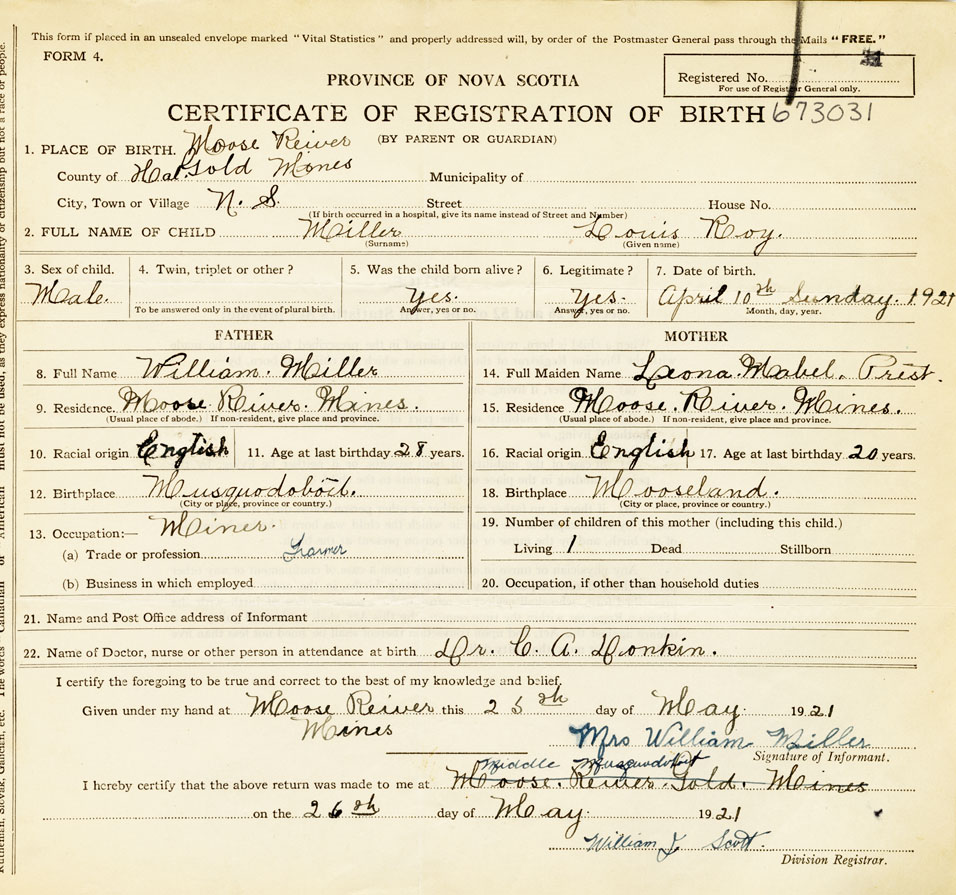 This form if placed in an unsealed envelope marked "Vital Statistics" and properly addressed will, by order of the Postmaster General pass through the Mails "FREE."
FORM 4.
Registered No.
For use of Registrar General only.
PROVINCE OF NOVA SCOTIA
CERTIFICATE OF REGISTRATION OF BIRTH 673031
(BY PARENT OR GUARDIAN)
1. PLACE OF BIRTH. Moose Reiver
County of Hal. Gold Mines Municipality of
City, Town or Village N. S. Street House No.
(If birth occurred in a hospital, give its name instead of Street and Number)
2. FULL NAME OF CHILD Miller Louis Roy.
(Surname) (Given name)
3. Sex of child. 4. Twin, triplet or other? 5. Was the child born alive? 6. Legitimate? 7. Date of birth.
Male. Yes. Yes. April 10th Sunday. 1921
To be answered only in the event of plural birth. Answer, yes or no. Answer, yes or no. Month, day, year.
FATHER MOTHER
8. Full Name William. Miller 14. Full Maiden Name Leona. Mabel. Prest.
9. Residence. Moose River. Mines. 15. Residence Moose. River. Mines.
(Usual place of abode.) If non-resident, give place and province. (Usual place of abode.) If non-resident, give place and province.
10. Racial origin English 11. Age at last birthday 28 years. 16. Racial origin English 17. Age at last birthday 20 years.
12. Birthplace Musquodoboit. 18. Birthplace Mooseland.
(City or place, province or country.) (City or place, province or country.)
13. Occupation:— Miner. 19. Number of children of this mother (including this child.)
(a) Trade or profession Farmer Living 1 Dead Stillborn
(b) Business in which employed 20. Occupation, if other than household duties
21. Name and Post Office address of Informant
22. Name of Doctor, nurse or other person in attendance at birth Dr. C. A. Donkin.
I certify the foregoing to be true and correct to the best of my knowledge and belief.
Given under my hand at Moose Reiver this 25th day of May. 1921
Mines
Mrs William Miller
Signature of Informant.
Middle Musquodoboit
I hereby certify that the above return was made to me at Moose. Reiver. Gold. Mines
on the 26th day of May 1921
William J. Scott.
Division Registrar.